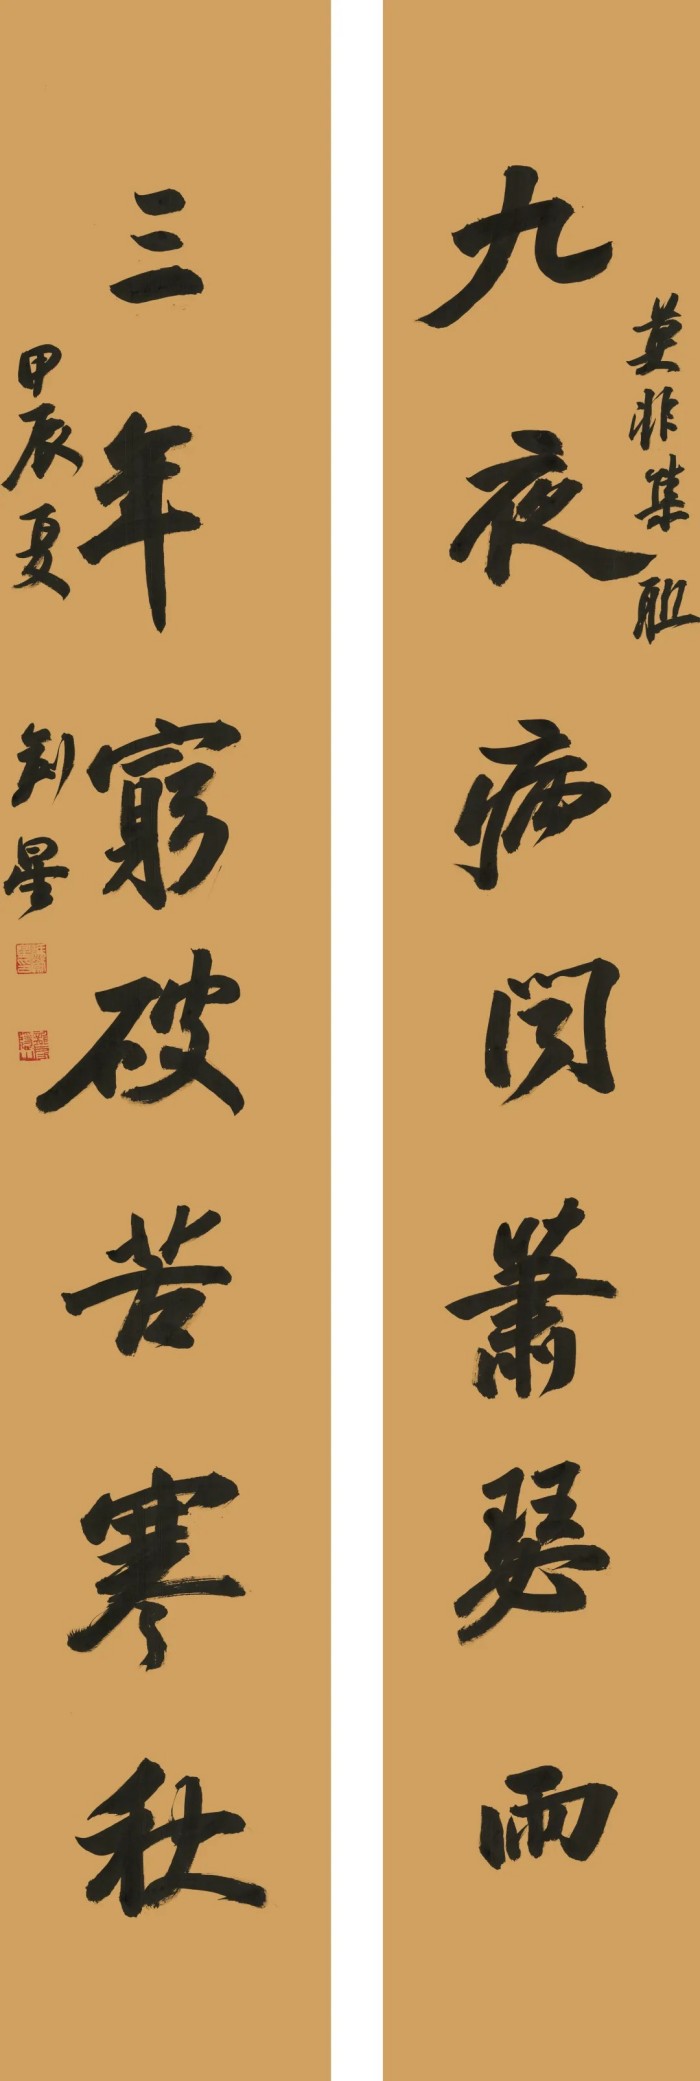 莫非集联
九夜病闵萧瑟雨
三年穷破苦寒秋
甲辰夏
刘星